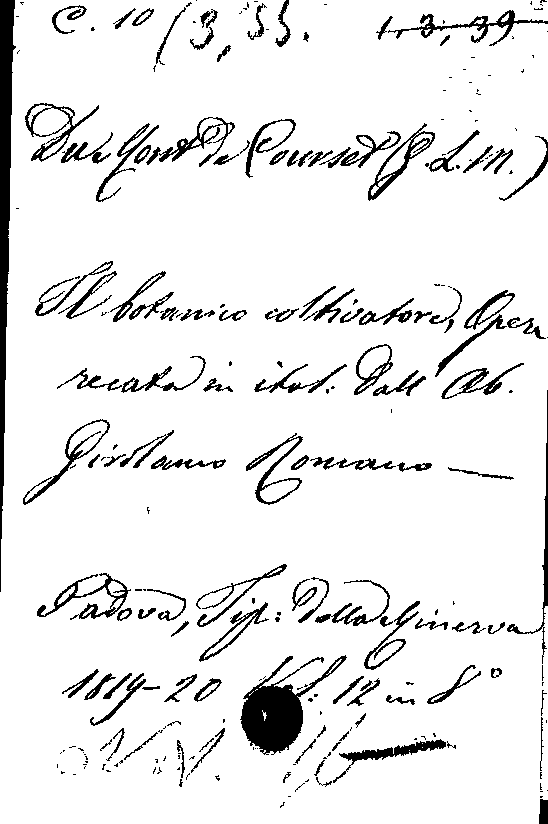 C. 10 (3, 35. 1, 3, 39
Du Mont De Courset (G. L. M.)
Il botanico coltivatore, Opera
recata in ital: Dall' Ab.
Girolamo Romano —
Padova, Tip: Della Minerva
1819-20 Vol: 12 in 8°